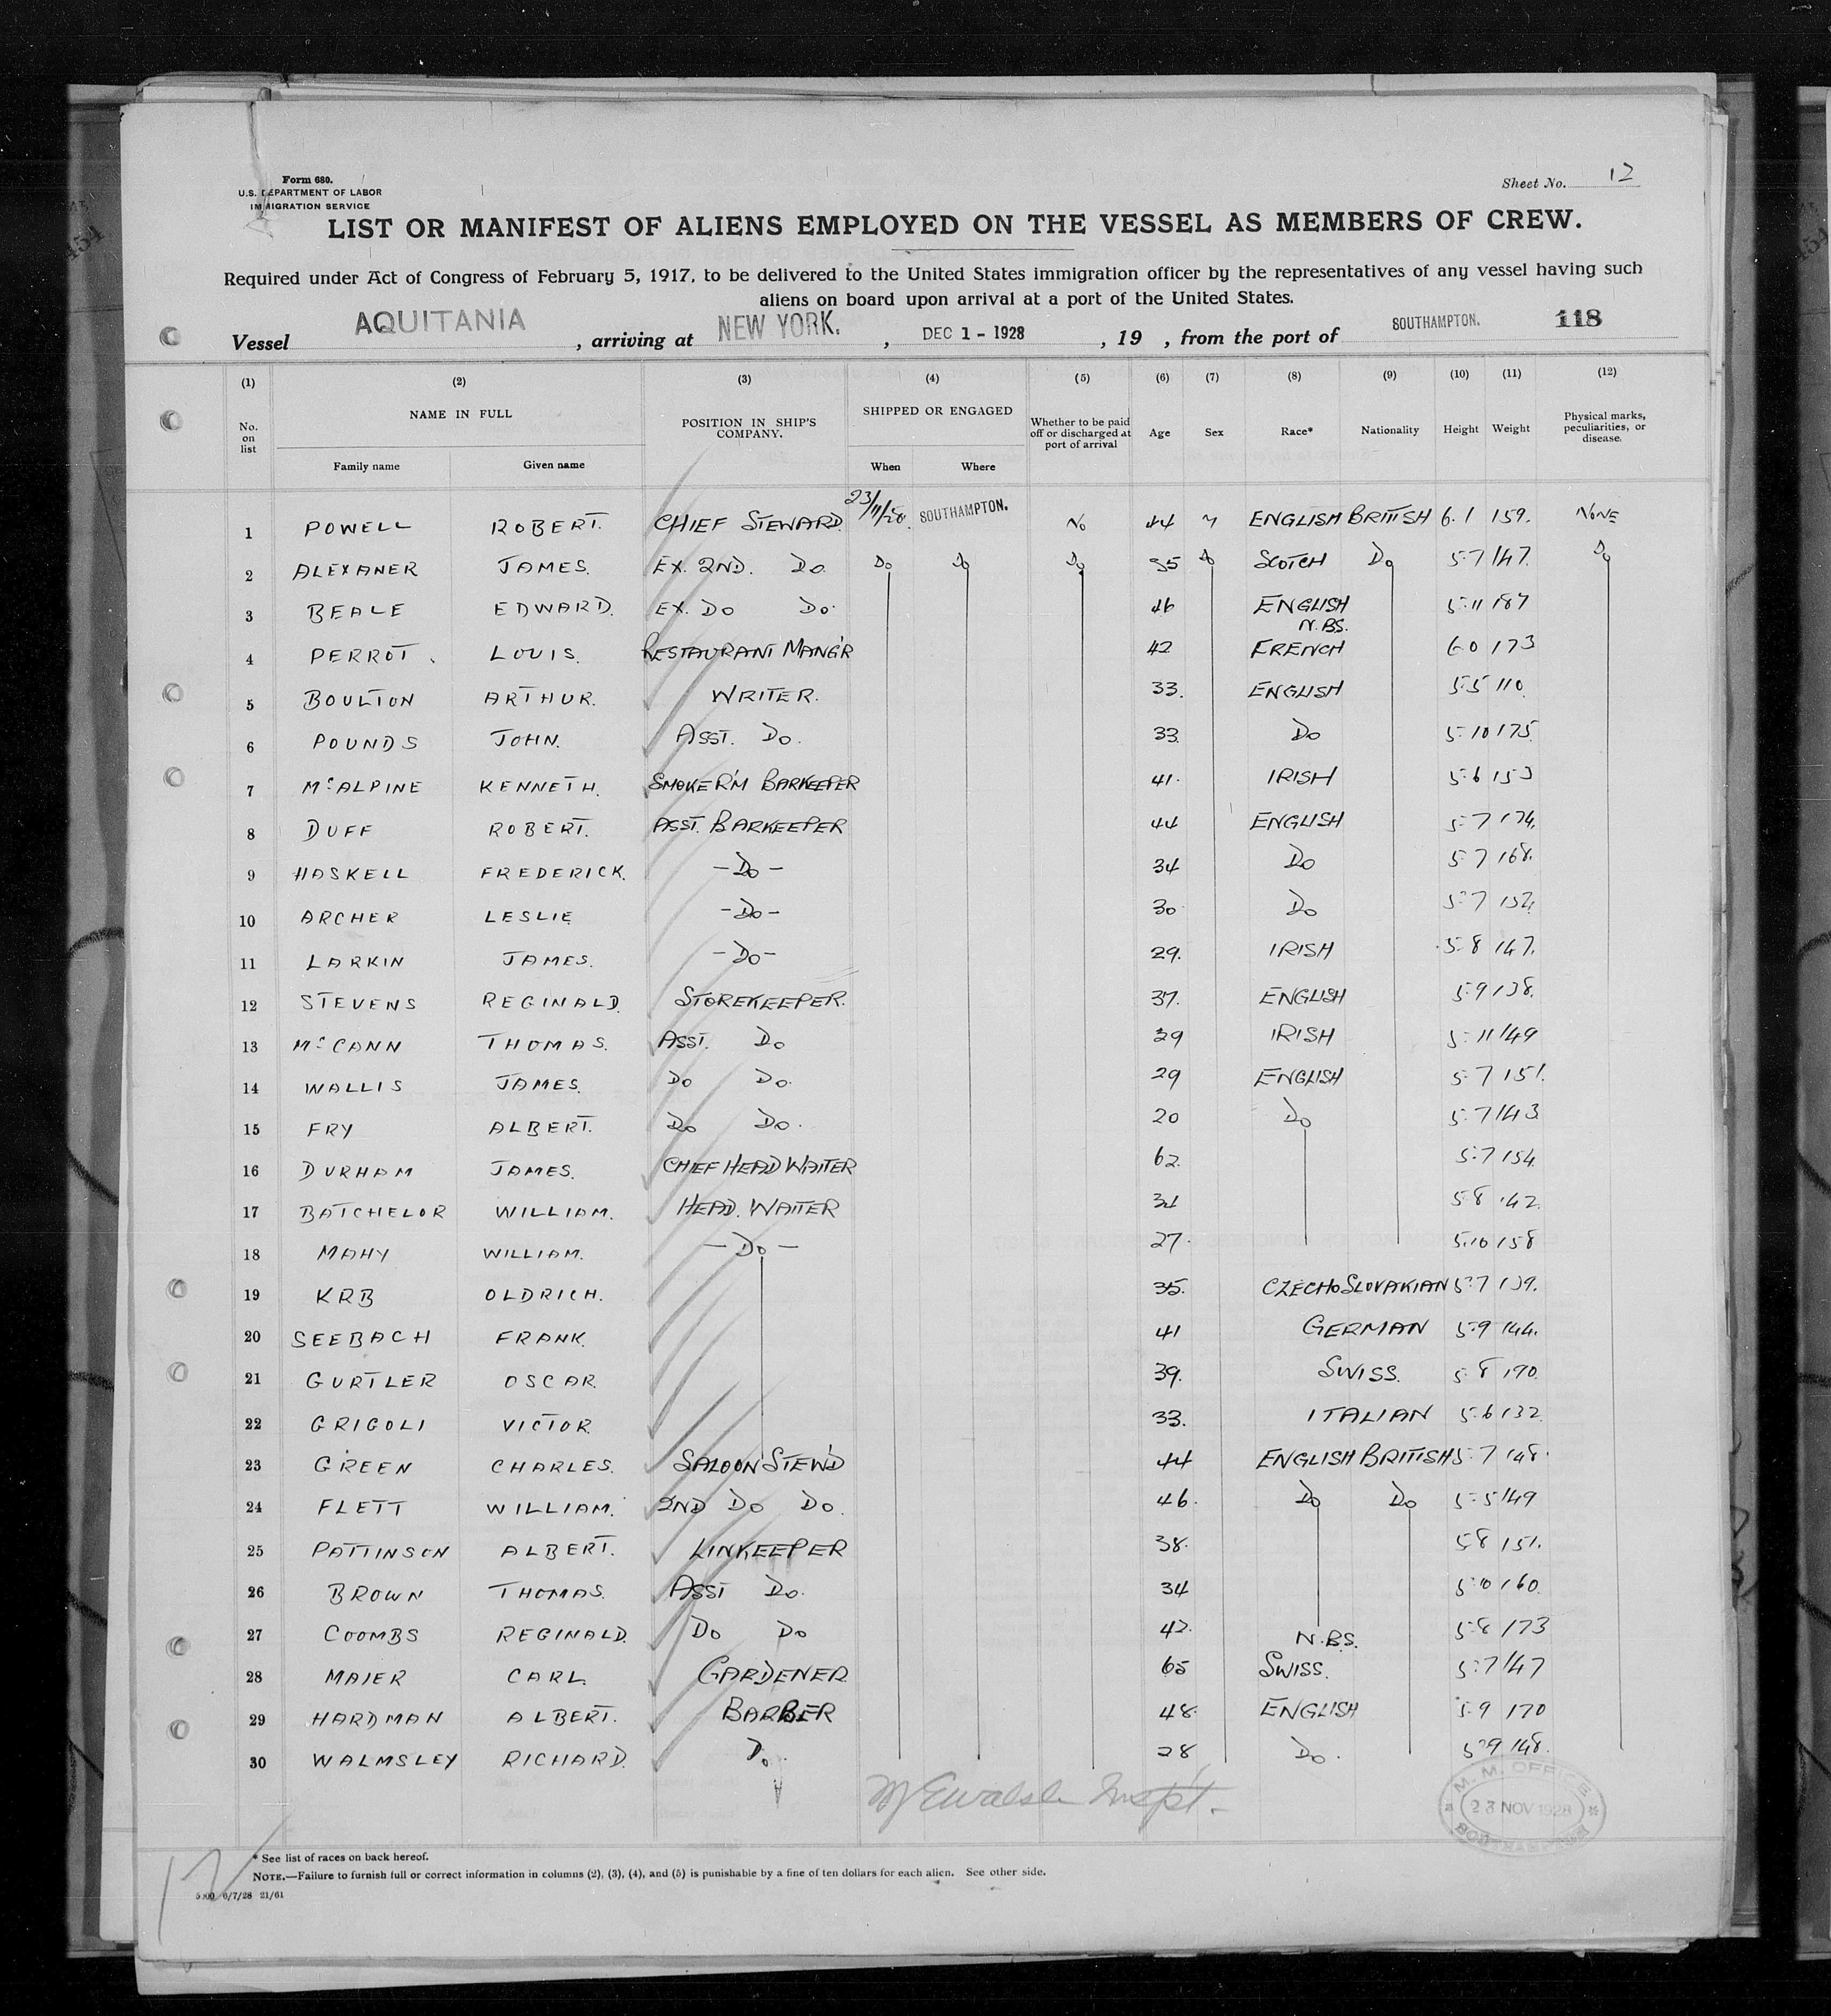 Form 680.
U.S. DEPARTMENT OF LABOR
IMMIGRATION SERVICE
Sheet No. 12
LIST OR MANIFEST OF ALIENS EMPLOYED ON THE VESSEL AS MEMBERS OF CREW.
Required under Act of Congress of February 5, 1917, to be delivered to the United States immigration officer by the representatives of any vessel having such
aliens on board upon arrival at a port of the United States.
Vessel AQUITANIA , arriving at NEW YORK. , DEC 1 - 1928 , 19 , from the port of SOUTHAMPTON. 118
(1) (2) (3) (4) (5) (6) (7) (8) (9) (10) (11) (12)
No. on list NAME IN FULL Family name Given name POSITION IN SHIP'S COMPANY. SHIPPED OR ENGAGED When Where Whether to be paid off or discharged at port of arrival Age Sex Race* Nationality Height Weight Physical marks, peculiarities, or disease.
1 POWELL ROBERT. CHIEF STEWARD. 23/11/28. SOUTHAMPTON. No 44 M ENGLISH BRITISH 6.1 159. NONE
2 ALEXANER JAMES. EX. 2ND. Do Do Do Do 35 Do SCOTCH Do 5:7 147. Do
3 BEALE EDWARD. EX. Do Do. 46 ENGLISH 5:11 187
4 PERROT. LOUIS. RESTAURANT MANG'R 42 N.BS. FRENCH 6.0 173
5 BOULTON ARTHUR. WRITER. 33. ENGLISH 5:5 110.
6 POUNDS JOHN. ASST. Do. 33. Do 5:10 175.
7 McALPINE KENNETH. SMOKE R'M BARKEEPER 41. IRISH 5:6 153
8 DUFF ROBERT. ASST. BARKEEPER 44 ENGLISH 5:7 174.
9 HASKELL FREDERICK. -Do- 34 Do 5:7 168.
10 ARCHER LESLIE -Do- 30 Do 5:7 152.
11 LARKIN JAMES. -Do- 29. IRISH 5:8 147.
12 STEVENS REGINALD. STOREKEEPER. 37. ENGLISH 5:9 138.
13 McCANN THOMAS. ASST. Do 39 IRISH 5:11 149
14 WALLIS JAMES. Do Do. 29 ENGLISH 5:7 151.
15 FRY ALBERT. Do Do. 20 Do 5:7 143
16 DURHAM JAMES. CHIEF HEAD WAITER 62. 5:7 154.
17 BATCHELOR WILLIAM. HEAD. WAITER 5:8 142.
18 MAHY WILLIAM. -Do- 27. 5:10 158
19 KRB OLDRICH. 35. CZECHOSLOVAKIAN 5:7 139.
20 SEEBACH FRANK. 41 GERMAN 5:9 144.
21 GURTLER OSCAR. 39. SWISS. 5:8 170.
22 GRIGOLI VICTOR. 33. ITALIAN 5:6 132.
23 GREEN CHARLES. SALOON STEW'D 44 ENGLISH BRITISH 5:7 148.
24 FLETT WILLIAM. 2ND Do Do. 46. Do Do 5:5 149
25 PATTINSON ALBERT. LINKEEPER 38. 5:8 151.
26 BROWN THOMAS. ASST Do. 34 160.
27 COOMBS REGINALD. Do Do 42. 5:8 173
28 MAIER CARL. GARDENER. 65 N.B.S. SWISS. 5:7 147
29 HARDMAN ALBERT. BARBER 48. ENGLISH 5:9 170
30 WALMSLEY RICHARD. Do. 28 Do. 5:9 148.
Walsh Insp't.
M. M. OFFICE
23 NOV 1928
SOUTHAMPTON
* See list of races on back hereof.
NOTE.—Failure to furnish full or correct information in columns (2), (3), (4), and (5) is punishable by a fine of ten dollars for each alien. See other side.
6/7/28 21/61